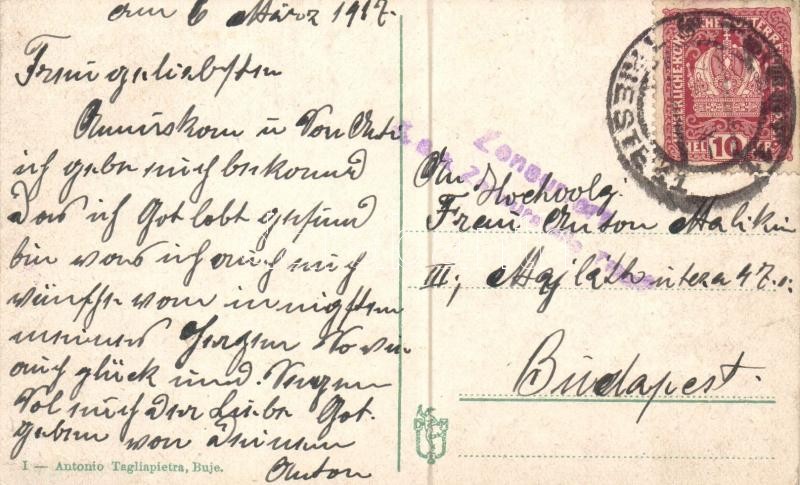 am 6 März 1917.
Frau geliebsten
u Von
ich gebe euch bekannt
Das ich Got lobt gesund
bin was ich auch euch
wünsche vom innigsten
meines Herzen
auch glück und Segen
Sol euch Der Liebe Got
geben von Deinem
Anton
An Hochwolg
Frau Anton Malikin
III; Majláth utcza 47.
Budapest.
TRIEST
KAISERLICHE KÖNIGLICHE ÖSTERR. POST
HELLER 10
Zensuriert
I — Antonio Tagliapietra, Buje.